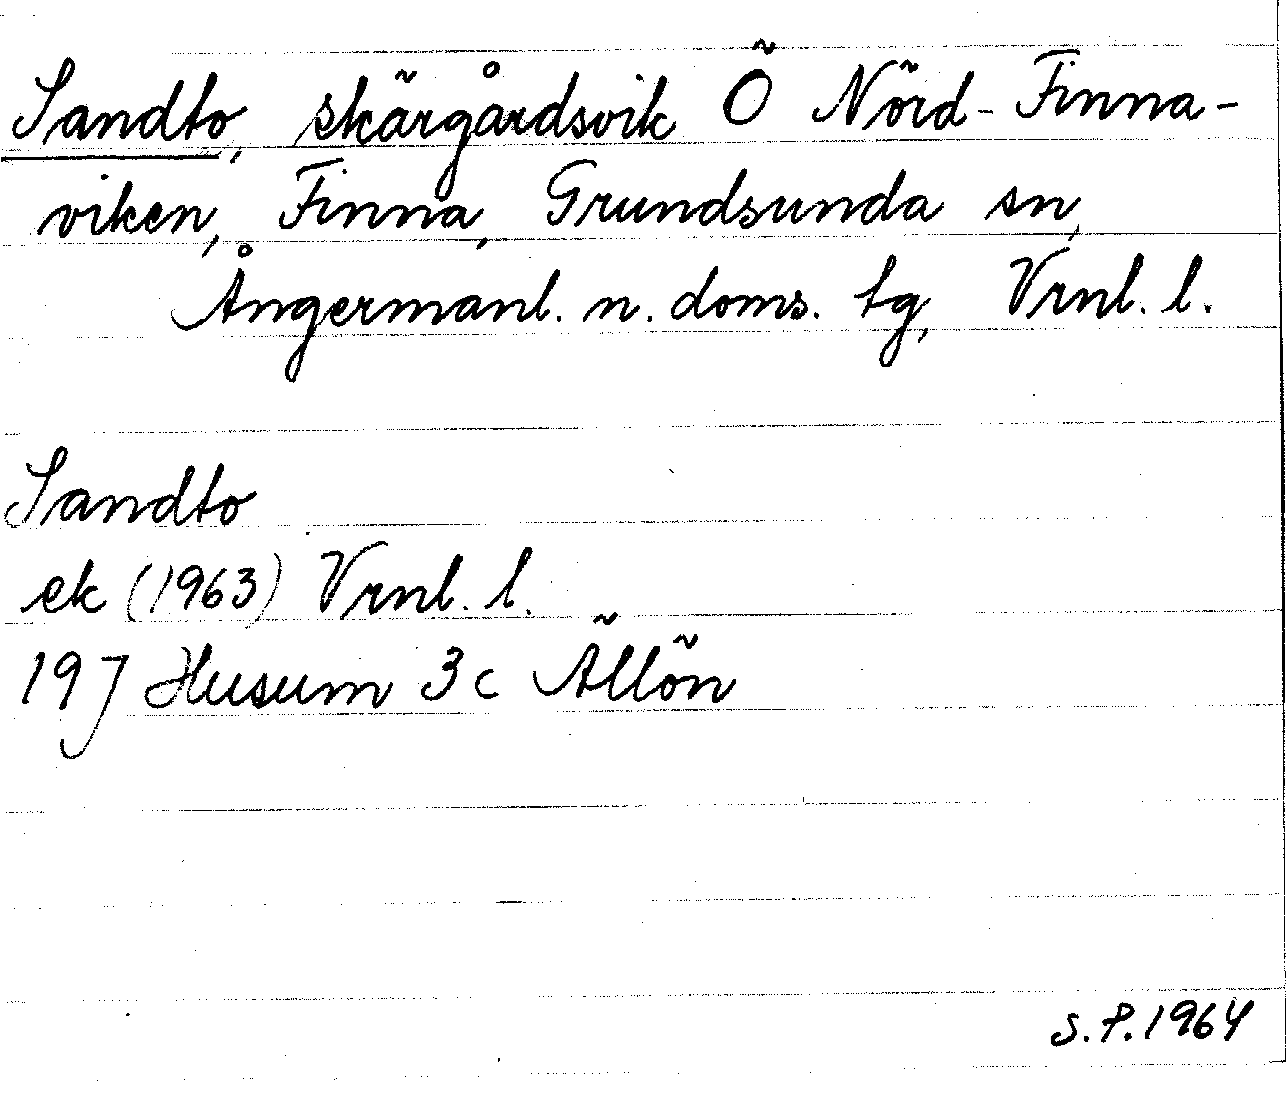 Sandto, skärgårdsvik Ö Nörd-Finna-
viken, Finna, Grundsunda sn,
Ångermanl. n. doms. tg, Vrnl. l.
Sandto
ek (1963) Vrnl. l.
19J Husum 3c Ällön
S.P. 1964